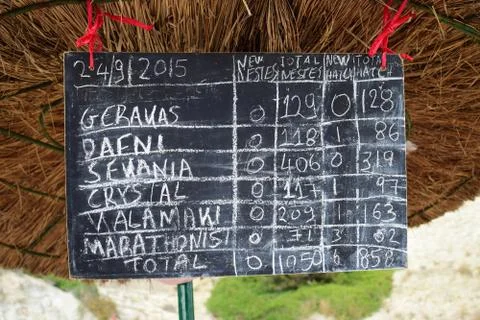 24/9/2015 NEW NESTES TOTAL NESTES NEW HATCH TOTAL HATCH
GERAKAS 0 129 0 128
DAFNI 0 118 1 86
SEKANIA 0 406 0 319
CRYSTAL 0 117 1 97
KALAMAKI 0 209 1 163
MARATHONISI 0 71 3
TOTAL 0 1050 6 858